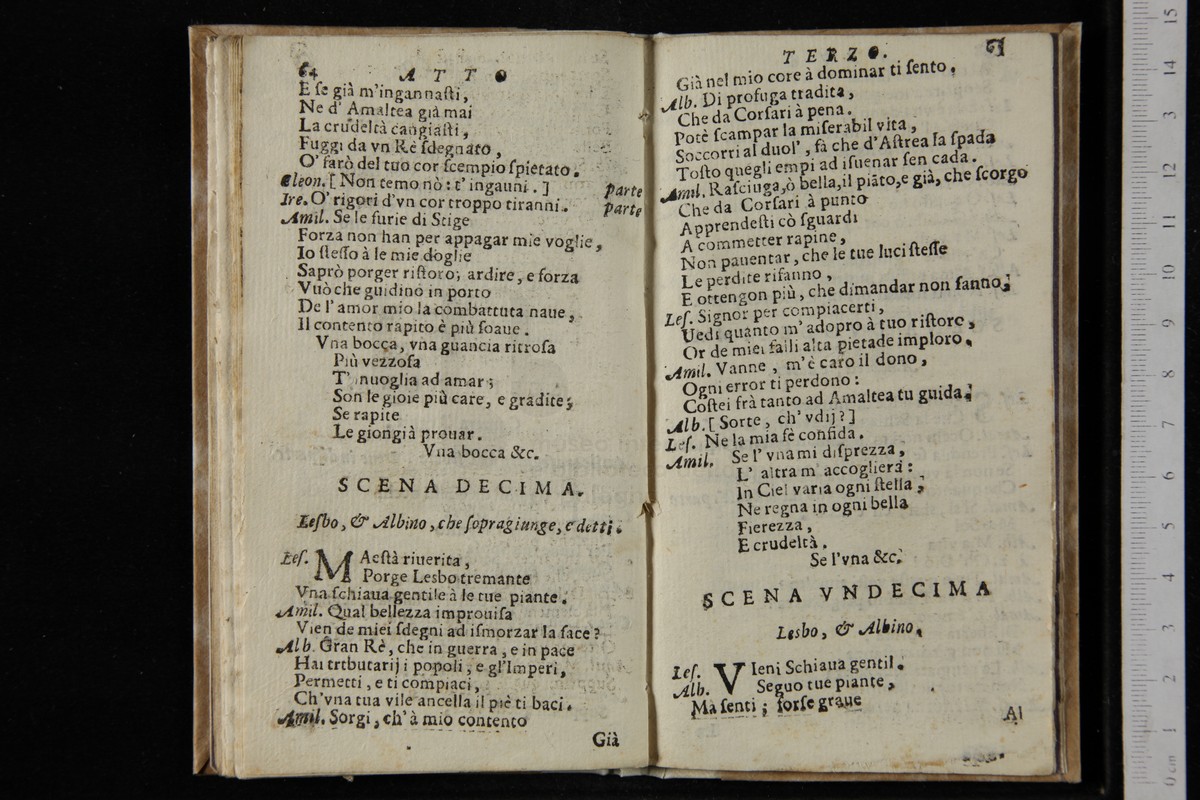 64 ATTO
E ſe già m'ingannaſti,
Ne d'Amaltea già mai
La crudeltà cangiaſti,
Fuggi da vn Rè ſdegnato,
O' farò del tuo cor ſcempio ſpietato.
Cleon. [Non temo nò: t'ingauni.] parte
Ire. O' rigori d'vn cor troppo tiranni. parte
Amil. Se le furie di Stige
Forza non han per appagar mie voglie,
Io ſteſſo à le mie doglie
Saprò porger riſtoro; ardire, e forza
Vuò che guidino in porto
De l'amor mio la combattuta naue,
Il contento rapito è più ſoaue.
Vna bocca, vna guancia ritroſa
Più vezzoſa
T'inuoglia ad amar;
Son le gioie più care, e gradite;
Se rapite
Le giongi à prouar.
Vna bocca &c.
SCENA DECIMA.
Lesbo, & Albino, che ſopragiunge, e detti.
Leſ. MAeſtà riuerita,
Porge Lesbo tremante
Vna ſchiaua gentile à le tue piante.
Amil. Qual bellezza improuiſa
Vien de miei ſdegni ad iſmorzar la face?
Alb. Gran Rè, che in guerra, e in pace
Hai trtbutarij i popoli, e gl'Imperi,
Permetti, e ti compiaci,
Ch'vna tua vile ancella il piè ti baci.
Amil. Sorgi, ch'à mio contento
Già
TERZO.
Già nel mio core à dominar ti ſento.
Alb. Di profuga tradita,
Che da Corſari à pena.
Potè ſcampar la miſerabil vita,
Soccorri al duol', fà che d'Aſtrea la ſpada
Toſto quegli empi ad iſuenar ſen cada.
Amil. Raſciuga, ò bella, il piãto, e già, che ſcorgo
Che da Corſari à punto
Apprendeſti cò ſguardi
A commetter rapine,
Non pauentar, che le tue luci ſteſſe
Le perdite rifanno,
E ottengon più, che dimandar non ſanno;
Leſ. Signor per compiacerti,
Uedi quanto m'adopro à tuo riſtoro,
Or de miei falli alta pietade imploro.
Amil. Vanne, m'è caro il dono,
Ogni error ti perdono:
Coſtei frà tanto ad Amaltea tu guida;
Alb. [Sorte, ch'vdij?]
Leſ. Ne la mia fè confida.
Amil. Se l'vna mi diſprezza,
L'altra m'accoglierà:
In Ciel varia ogni ſtella,
Ne regna in ogni bella
Fierezza,
E crudeltà.
Se l'vna &c.
SCENA VNDECIMA
Lesbo, & Albino,
Leſ. VIeni Schiaua gentil.
Alb. Seguo tue piante,
Mà ſenti; forſe graue
Al
15
14
13
12
11
10
9
8
7
6
5
4
3
2
1
0 cm